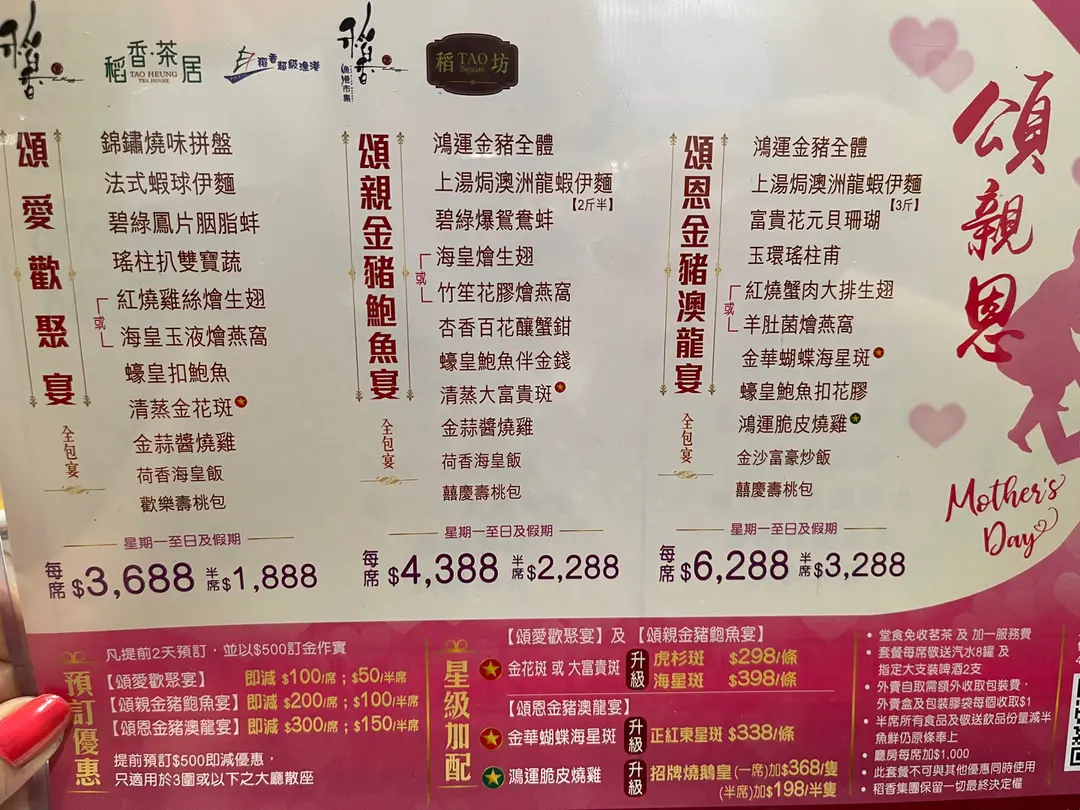 稻香
稻香·茶居
TAO HEUNG
TEA HOUSE
稻香超級漁港
稻香
漁港市集
稻坊
TAO
Square
頌愛歡聚宴
全包宴
錦鏽燒味拼盤
法式蝦球伊麵
碧綠鳳片胭脂蚌
瑤柱扒雙寶蔬
紅燒雞絲燴生翅
或
海皇玉液燴燕窩
蠔皇扣鮑魚
清蒸金花斑
金蒜醬燒雞
荷香海皇飯
歡樂壽桃包
星期一至日及假期
每席 $3,688 半席 $1,888
頌親金豬鮑魚宴
全包宴
鴻運金豬全體
上湯焗澳洲龍蝦伊麵
【2斤半】
碧綠爆鴛鴦蚌
海皇燴生翅
或
竹笙花膠燴燕窩
杏香百花釀蟹鉗
蠔皇鮑魚伴金錢
清蒸大富貴斑
金蒜醬燒雞
荷香海皇飯
囍慶壽桃包
星期一至日及假期
每席 $4,388 半席 $2,288
頌恩金豬澳龍宴
全包宴
鴻運金豬全體
上湯焗澳洲龍蝦伊麵
【3斤】
富貴花元貝珊瑚
玉環瑤柱甫
紅燒蟹肉大排生翅
或
羊肚菌燴燕窩
金華蝴蝶海星斑
蠔皇鮑魚扣花膠
鴻運脆皮燒雞
金沙富豪炒飯
囍慶壽桃包
星期一至日及假期
每席 $6,288 半席 $3,288
頌親恩
Mother's
Day
預訂優惠
凡提前2天預訂，並以$500訂金作實
【頌愛歡聚宴】 即減 $100/席；$50/半席
【頌親金豬鮑魚宴】即減 $200/席；$100/半席
【頌恩金豬澳龍宴】即減 $300/席；$150/半席
提前預訂$500即減優惠，
只適用於3圍或以下之大廳散座
星級加配
【頌愛歡聚宴】及【頌親金豬鮑魚宴】
金花斑 或 大富貴斑 升級 虎杉斑 $298/條
海星斑 $398/條
【頌恩金豬澳龍宴】
金華蝴蝶海星斑 升級 正紅東星斑 $338/條
鴻運脆皮燒雞 升級 招牌燒鵝皇 (一席)加$368/隻
(半席)加$198/半隻
• 堂食免收茗茶 及 加一服務費
• 套餐每席敬送汽水8罐 及
指定大支裝啤酒2支
• 外賣自取需額外收取包裝費，
外賣盒及包裝膠袋每個收取$1
• 半席所有食品及敬送飲品份量減半
魚鮮仍原條奉上
• 廳房每席加$1,000
• 此套餐不可與其他優惠同時使用
• 稻香集團保留一切最終決定權